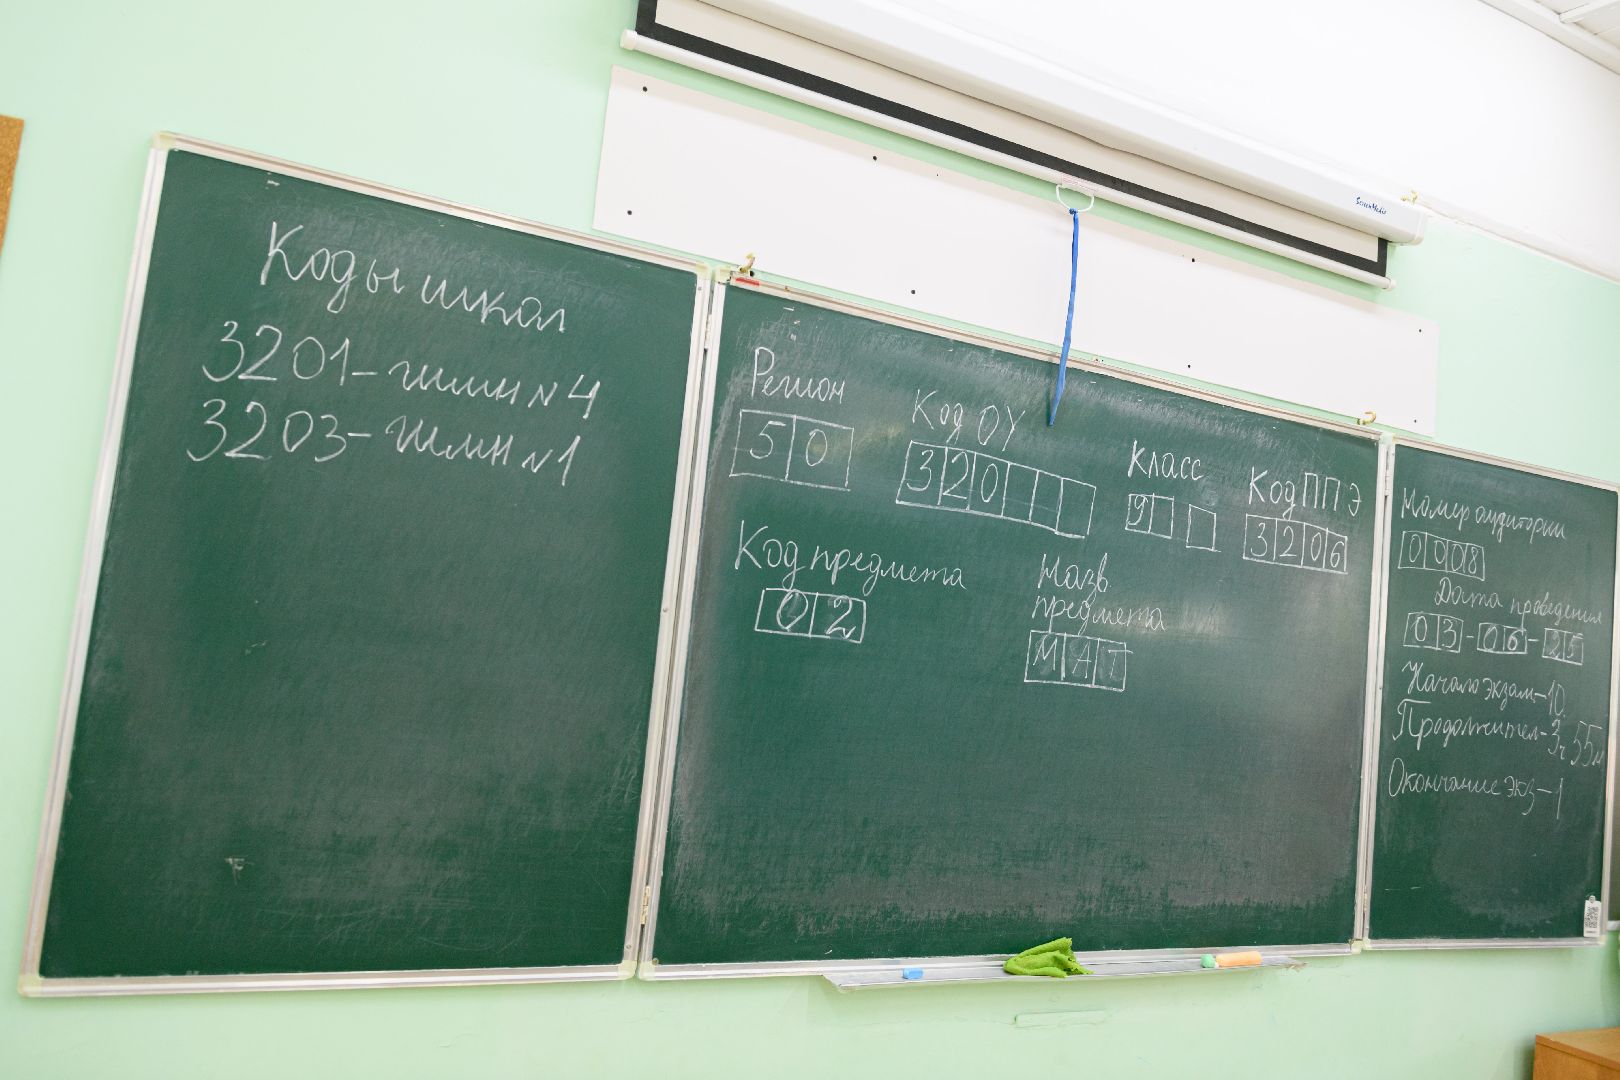 ScreenMedia
Коды школ
3201-гимн N4
3203-гимн N1
Регион
50
Код ОУ
320
Класс
9
Код ППЭ
3206
Код предмета
02
Назв
предмета
МАТ
Номер аудитории
0008
Дата проведения
03-06-25
Начало экзам-10.
Продолжител-3ч 55м
Окончание экз-1